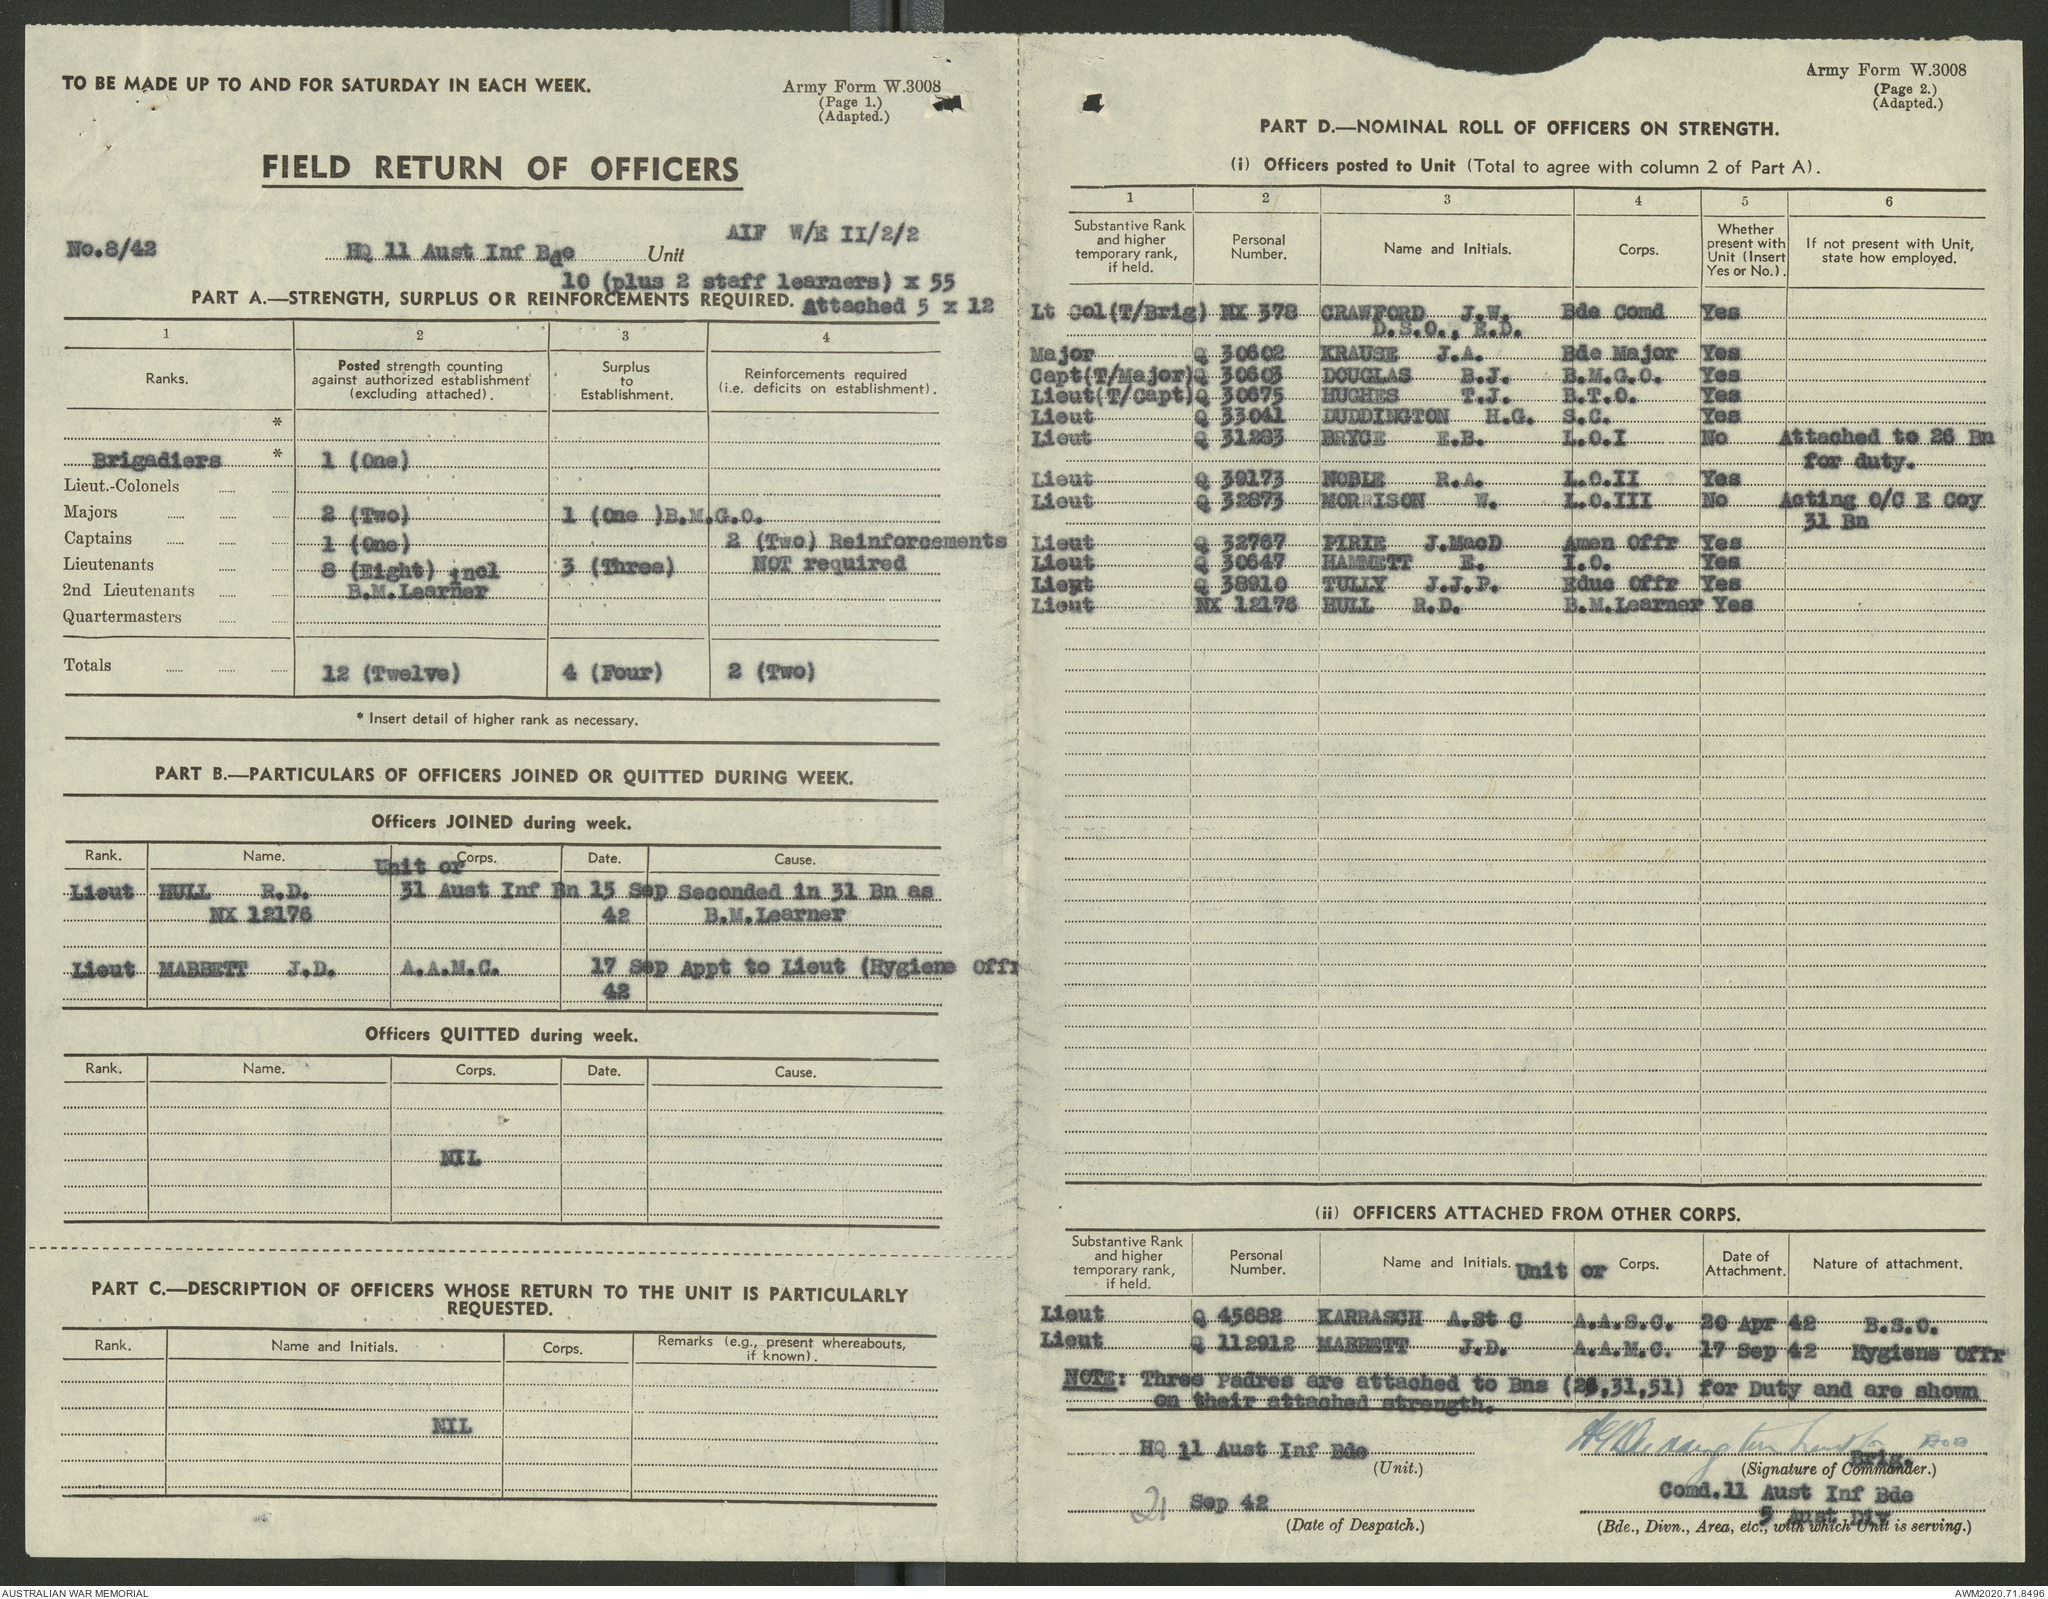 TO BE MADE UP TO AND FOR SATURDAY IN EACH WEEK.
Army Form W.3008
(Page 1.)
(Adapted.)
FIELD RETURN OF OFFICERS
AIF W/E II/2/2
No.8/42 HQ 11 Aust Inf Bde Unit
10 (plus 2 staff learners) x 55
PART A.—STRENGTH, SURPLUS OR REINFORCEMENTS REQUIRED. Attached 5 x 12
1 2 3 4
Ranks. Posted strength counting against authorized establishment (excluding attached). Surplus to Establishment. Reinforcements required (i.e. deficits on establishment).
*
Brigadiers * 1 (One)
Lieut.-Colonels
Majors 2 (Two) 1 (One )B.M.G.O.
Captains 1 (One) 2 (Two) Reinforcements
Lieutenants 8 (Eight) incl 3 (Three) NOT required
2nd Lieutenants B.M.Learner
Quartermasters
Totals 12 (Twelve) 4 (Four) 2 (Two)
* Insert detail of higher rank as necessary.
PART B.—PARTICULARS OF OFFICERS JOINED OR QUITTED DURING WEEK.
Officers JOINED during week.
Rank. Name. Unit or Corps. Date. Cause.
Lieut HULL R.D. 31 Aust Inf Bn 15 Sep Seconded in 31 Bn as
NX 12176 42 B.M.Learner
Lieut MABBETT J.D. A.A.M.C. 17 Sep Appt to Lieut (Hygiene Offr
42
Officers QUITTED during week.
Rank. Name. Corps. Date. Cause.
NIL
PART C.—DESCRIPTION OF OFFICERS WHOSE RETURN TO THE UNIT IS PARTICULARLY
REQUESTED.
Rank. Name and Initials. Corps. Remarks (e.g., present whereabouts, if known).
NIL
Army Form W.3008
(Page 2.)
(Adapted.)
PART D.—NOMINAL ROLL OF OFFICERS ON STRENGTH.
(i) Officers posted to Unit (Total to agree with column 2 of Part A).
1 2 3 4 5 6
Substantive Rank and higher temporary rank, if held. Personal Number. Name and Initials. Corps. Whether present with Unit (Insert Yes or No.). If not present with Unit, state how employed.
Lt Col(T/Brig) NX 378 CRAWFORD J.W. Bde Comd Yes
D.S.O., E.D.
Major Q 30602 KRAUSE J.A. Bde Major Yes
Capt(T/Major) Q 30603 DOUGLAS B.J. B.M.G.O. Yes
Lieut(T/Capt) Q 30675 HUGHES T.J. B.T.O. Yes
Lieut Q 33041 DUDDINGTON H.G. S.C. Yes
Lieut Q 31283 BRYCE E.B. L.O.I No Attached to 26 Bn
for duty.
Lieut Q 39173 NOBLE R.A. L.O.II Yes
Lieut Q 32873 MORRISON W. L.O.III No Acting O/C E Coy
31 Bn
Lieut Q 32767 PIRIE J.MacD Amen Offr Yes
Lieut Q 30647 HAMMETT E. I.O. Yes
Lieut Q 38910 TULLY J.J.P. Educ Offr Yes
Lieut NX 12176 HULL R.D. B.M.Learner Yes
(ii) OFFICERS ATTACHED FROM OTHER CORPS.
Substantive Rank and higher temporary rank, if held. Personal Number. Name and Initials. Unit or Corps. Date of Attachment. Nature of attachment.
Lieut Q 45682 KARRASCH A.St C A.A.S.C. 20 Apr 42 B.S.O.
Lieut Q 112912 MABBETT J.D. A.A.M.C. 17 Sep 42 Hygiene Offr
NOTE: Three Padres are attached to Bns (26,31,51) for Duty and are shown
on their attached strength.
HQ 11 Aust Inf Bde
(Unit.)
HGDuddington Brig.
(Signature of Commander.)
21 Sep 42
(Date of Despatch.)
Comd.11 Aust Inf Bde
5 Aust Div
(Bde., Divn., Area, etc., with which Unit is serving.)
AUSTRALIAN WAR MEMORIAL
AWM2020.71.8496